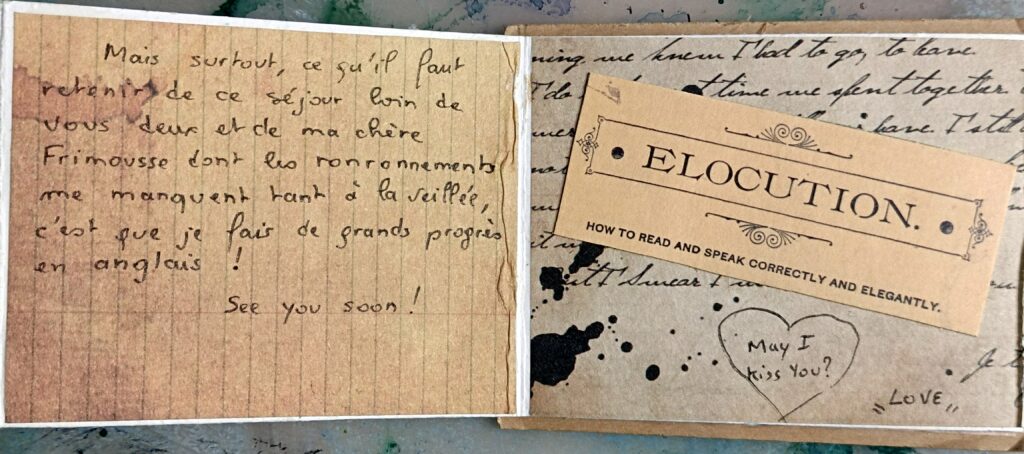 Mais surtout, ce qu'il faut
retenir de ce séjour loin de
vous deux et de ma chère
Frimousse dont les ronronnements
me manquent tant à la veillée,
c'est que je fais de grands progrès
en anglais !
See you soon !
ning me knew I had to go, to have
I do t time we spent together
i have. I still
ELOCUTION.
HOW TO READ AND SPEAK CORRECTLY AND ELEGANTLY.
it I swear I
May I
kiss You?
"LOVE"